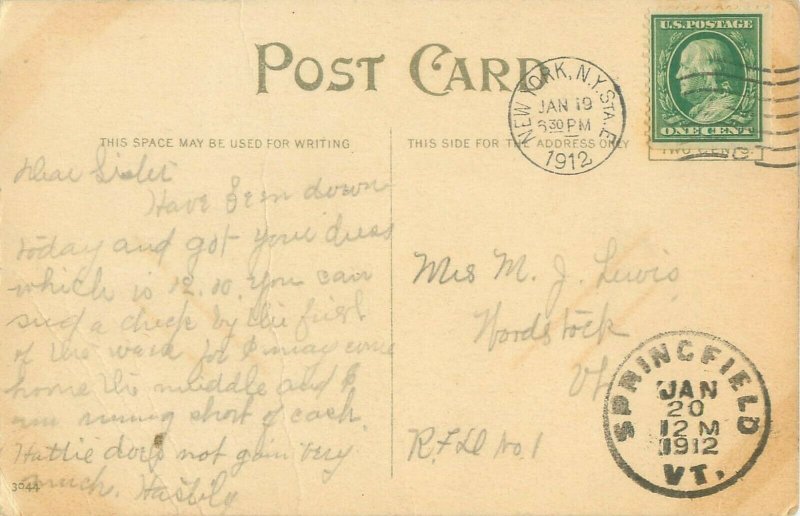 POST CARD
THIS SPACE MAY BE USED FOR WRITING.
THIS SIDE FOR THE ADDRESS ONLY
U.S. POSTAGE
ONE CENT
TWO CENTS
NEW YORK, N.Y. STA. E
JAN 19
630 PM
1912
Dear Sister
Have been down
today and got your dress
which is 12.10. You can
send a check by the first
of the week for I may come
home the middle and I
am running short of cash.
Hattie does not gain very
much. Hastily
3044
Mrs M. J. Lewis,
Woodstock
Vt
R.F.D. No. 1
SPRINGFIELD
JAN
20
12 M
1912
VT.